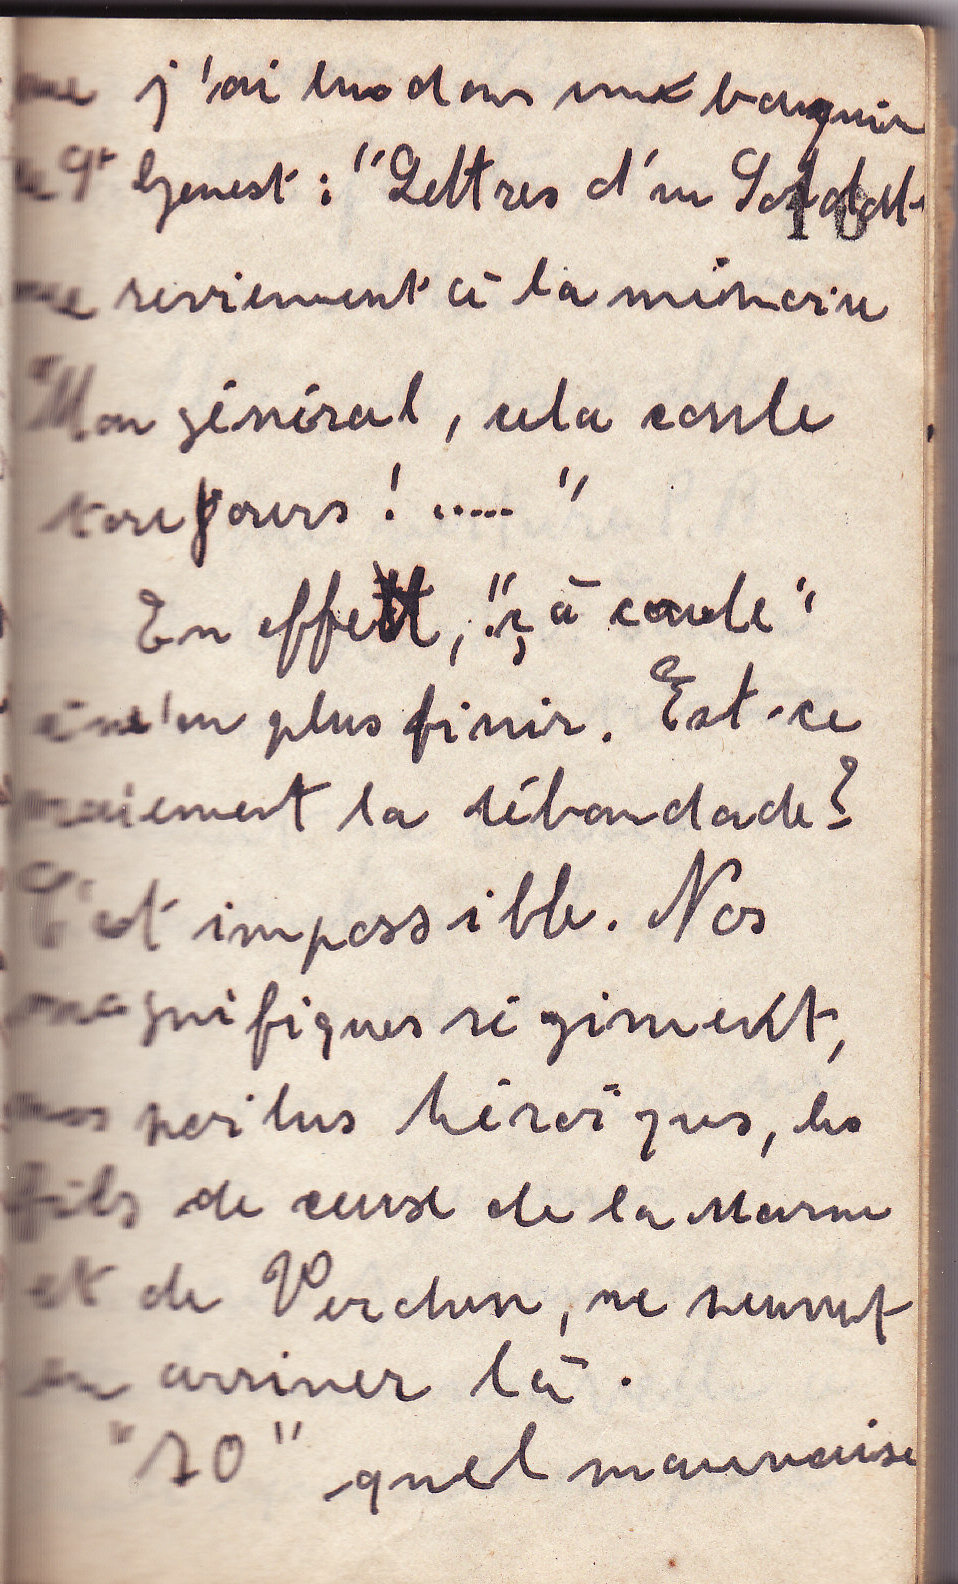 que j'ai lus dans un bouquin
de St Genest : "Lettres d'un Soldat
me reviennent à la mémoire
"Mon général, cela coule
toujours ! ..... "
En effet, "çà coule"
à n'en plus finir. Est-ce
vraiement la débandade ?
C'est impossible. Nos
magnifiques régiment,
nos poilus héroïques, les
fils de ceux de la Marne
et de Verdun, ne peuvent
en arriver là.
"70" quel mauvaise